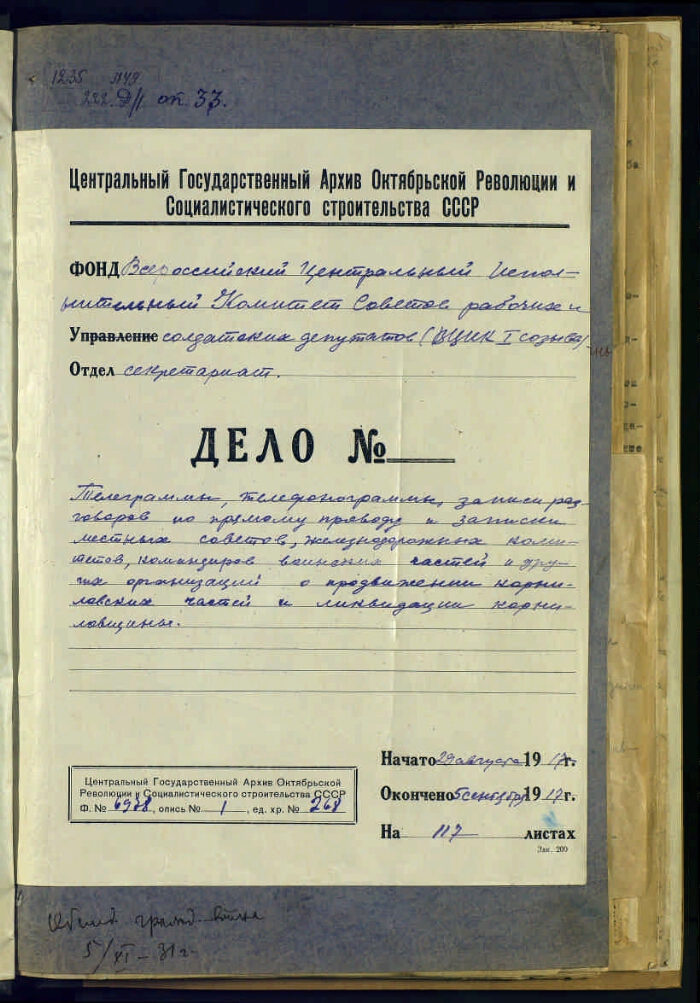 1235
222. оп 33.
Центральный Государственный Архив Октябрьской Революции и
Социалистического строительства СССР
ФОНД Всероссийский Центральный Испол-
нительный Комитет Советов рабочих и
Управление солдатских депутатов (ВЦИК I созыва)
Отдел секретариат.
ДЕЛО №
Телеграммы, телефонограммы, записи раз-
говоров по прямому проводу и записки
местных советов, железнодорожных коми-
тетов, командиров воинских частей и дру-
гих организаций о продвижении корни-
ловских частей и ликвидации корни-
ловщины.
Начато 29 августа 1917г.
Окончено 5 сентября 1917г.
На 117 листах
Зак. 200
Центральный Государственный Архив Октябрьской
Революции и Социалистического строительства СССР
Ф. № 6978, опись № 1, ед. хр. № 268
5/XI-31г.